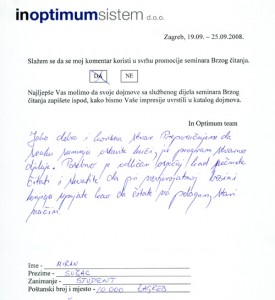 inoptimumsistem d.o.o.
Zagreb, 19.09. – 25.09.2008.
Slažem se da se moj komentar koristi u svrhu promocije seminara Brzog čitanja.
DA NE
Najljepše Vas molimo da svoje dojmove sa službenog dijela seminara Brzog
čitanja zapišete ispod, kako bismo Vaše impresije uvrstili u katalog dojmova.
In Optimum team
Jako dobra i korisna stvar. Preporučujem da
svaku sumnju ostavite kući, jer program stvarno
djeluje. Posebno je odličan osjećaj kad počnete
čitati i shvatite da po
knjigu kao da čitate po starom
načinu.
Ime - MIRAN
Prezime - SUŠAC
Zanimanje - STUDENT
Poštanski broj i mjesto - 10 000 ZAGREB